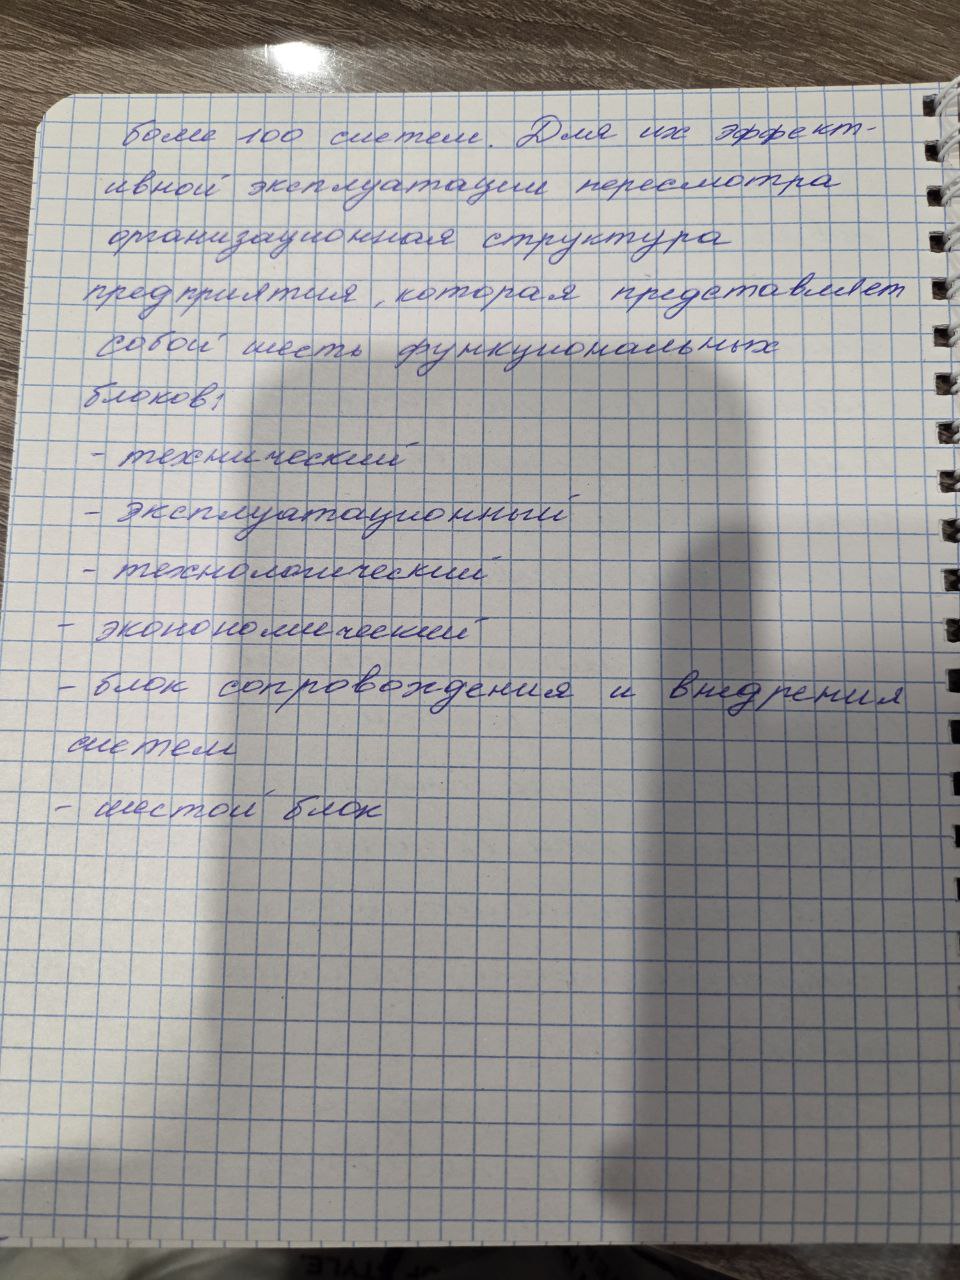 более 100 систем. Для их эффект-
ивной эксплуатации пересмотра
организационная структура
предприятия, которая представляет
собой шесть функциональных
блоков:
- технический
- эксплуатационный
- технологический
- эконономический
- блок сопровождения и внедрения
систем
- шестой блок